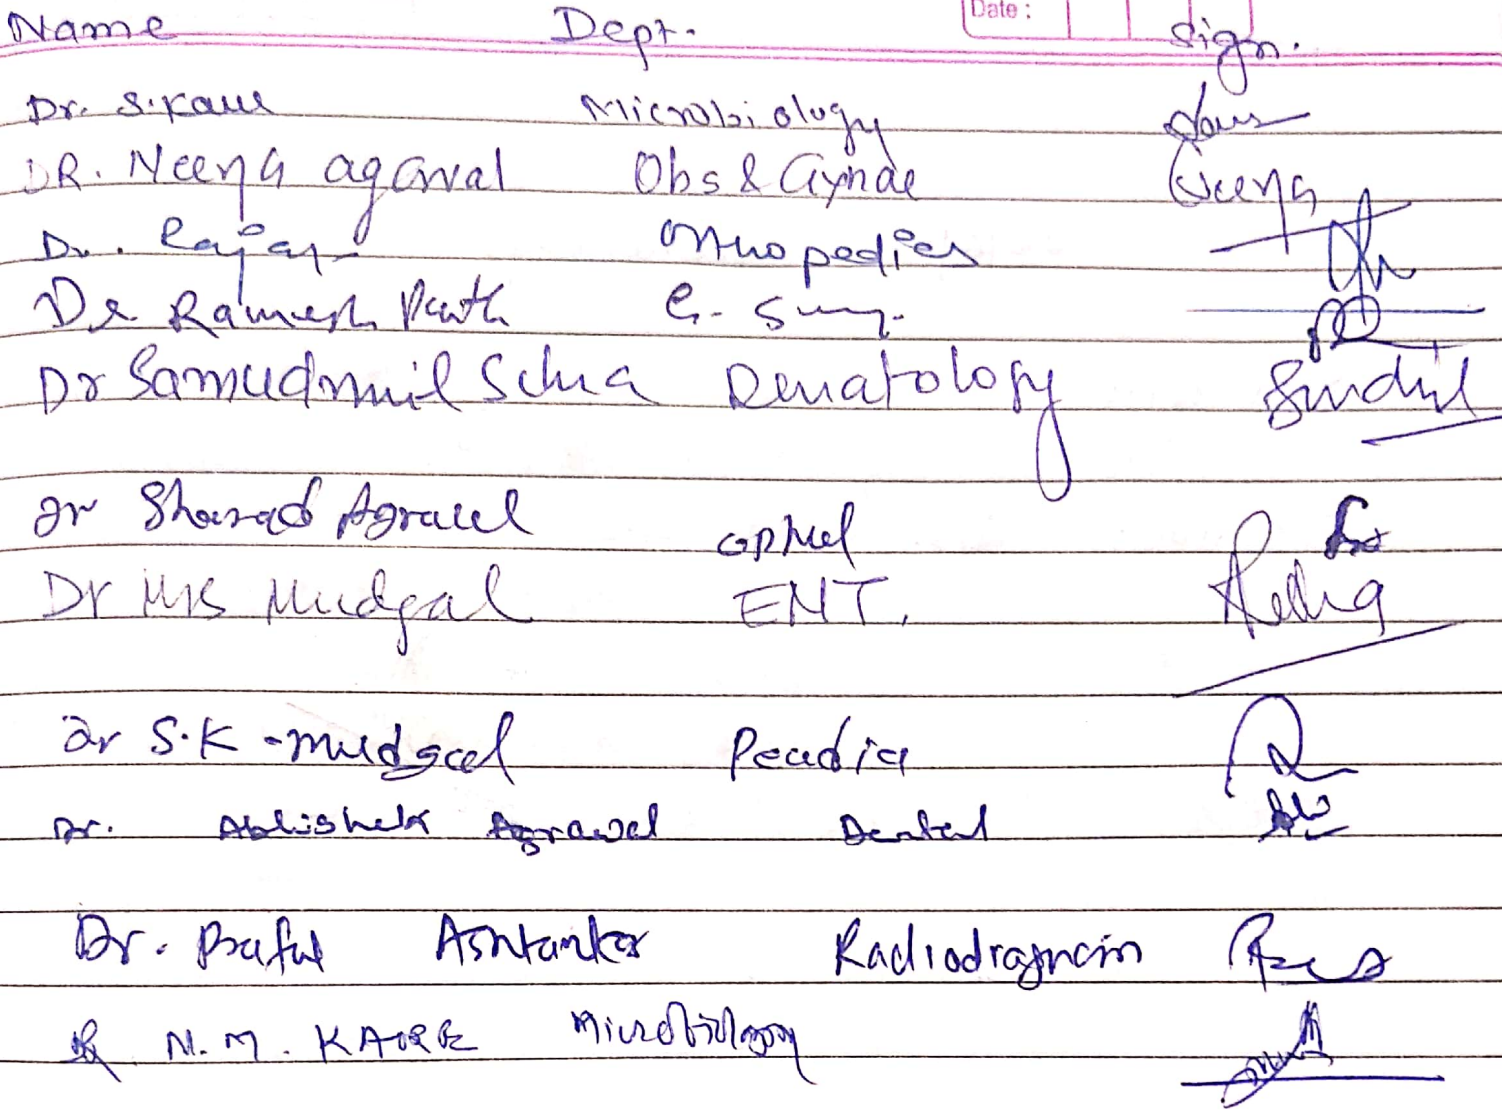 Date :
Name Dept. Sign.
Dr. S. Kaul Microbiology
DR. Neena agarwal Obs & Gynae Neena
Dr. Rajan Orthopedics
Dr Ramesh G. Surg.
Dr Dermatology
Dr Sharad Agrawal Ophthal
Dr Mrs Mudgal ENT.
Dr S.K. mudgal Peadia
Dr. Abhishek Agrawal Dental
Dr. Praful Ashtankar Radiodiagnosis
Dr N. M. Microbiology